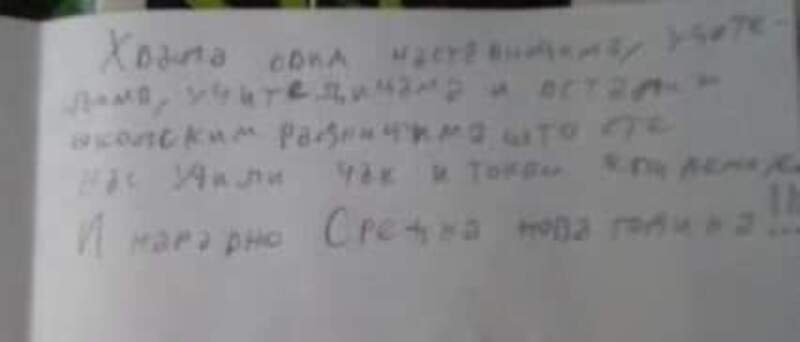 Хвала свим наставницима, учите-
љима, учитељицама и осталим
школским радницима што сте
нас учили чак и током епидемије
И наравно Срећна нова година!!!